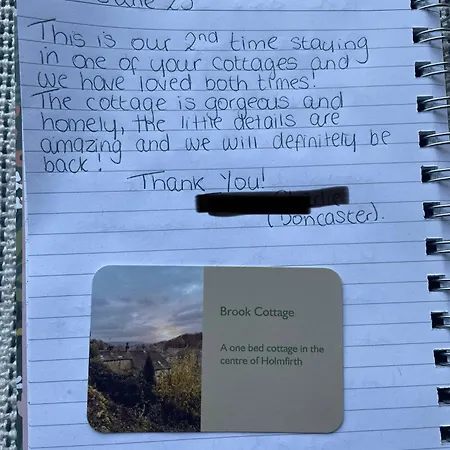 June 23
This is our 2nd time staying
in one of your cottages and
we have loved both times!
The cottage is gorgeous and
homely, the little details are
amazing and we will definitely be
back!
Thank You!
(Doncaster).
Brook Cottage
A one bed cottage in the
centre of Holmfirth